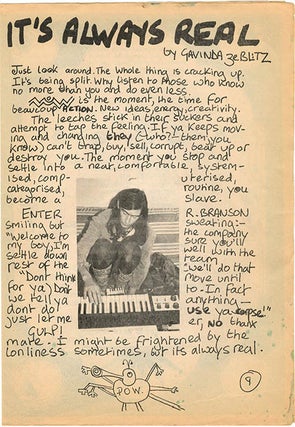 IT'S ALWAYS REAL
by GAVINDA ZE BLITZ
Just look around. The whole thing is cracking up.
It's being split. Why listen to those who know
no more than you and do even less.
NOW is the moment, the time for
beaucoup ACTION. New ideas, energy, creativity.
The leeches stick in their suckers and
attempt to tap the feeling. If ya keeps mov-
ing and changing they (who?-them you
know) can't trap, buy, sell, corrupt, beat up or
destroy you. The moment you stop and
settle into a neat, comfortable, system-
ised, comp- uterised,
categorised, routine, you
become a slave.
ENTER R. BRANSON
smiling but sweating-
"Welcome to the company
my boy, I'm sure you'll
settle down well with the
rest of the team
"Don't think we'll do that
for ya) Don't move until
we tell ya to. In fact
dont do anything—
just let me use ya corpse!"
GULP! er, NO thank
mate. I might be frightened by the
lonliness sometimes, but its always real.
POW.
9